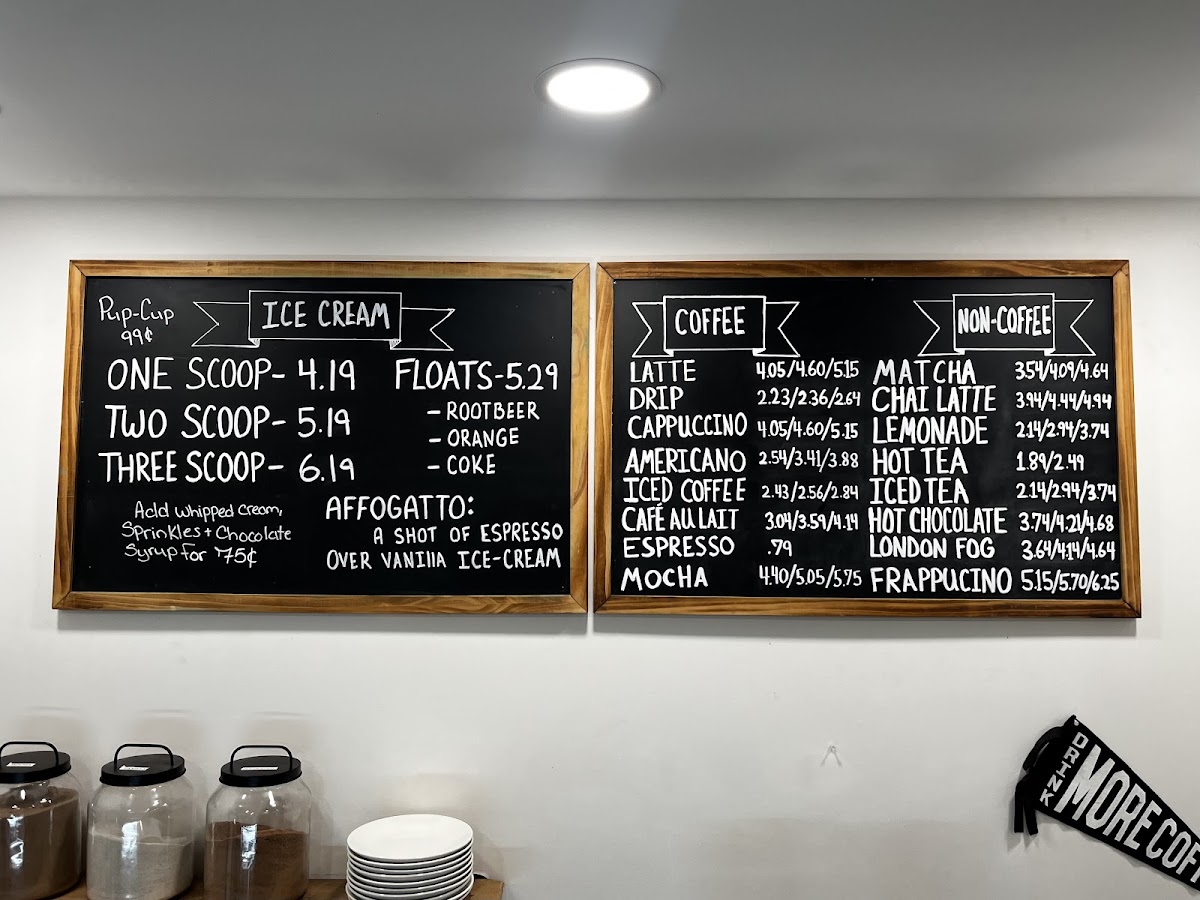 Pup-Cup
99¢
ICE CREAM
ONE SCOOP- 4.19
TWO SCOOP- 5.19
THREE SCOOP- 6.19
Add whipped cream,
Sprinkles + Chocolate
Syrup for 75¢
FLOATS-5.29
- ROOTBEER
- ORANGE
- COKE
AFFOGATTO:
A SHOT OF ESPRESSO
OVER VANIllA ICE-CREAM
COFFEE
LATTE 4.05/4.60/5.15
DRIP 2.23/2.36/2.64
CAPPUCCINO 4.05/4.60/5.15
AMERICANO 2.54/3.41/3.88
ICED COFFEE 2.43/2.56/2.84
CAFÉ AU LAIT 3.04/3.59/4.14
ESPRESSO .79
MOCHA 4.40/5.05/5.75
NON-COFFEE
MATCHA 3.54/4.09/4.64
CHAI LATTE 3.94/4.44/4.94
LEMONADE 2.14/2.94/3.74
HOT TEA 1.89/2.49
ICED TEA 2.14/2.94/3.74
HOT CHOCOLATE 3.74/4.21/4.68
LONDON FOG 3.64/4.14/4.64
FRAPPUCINO 5.15/5.70/6.25
DRINK
MORE COFF